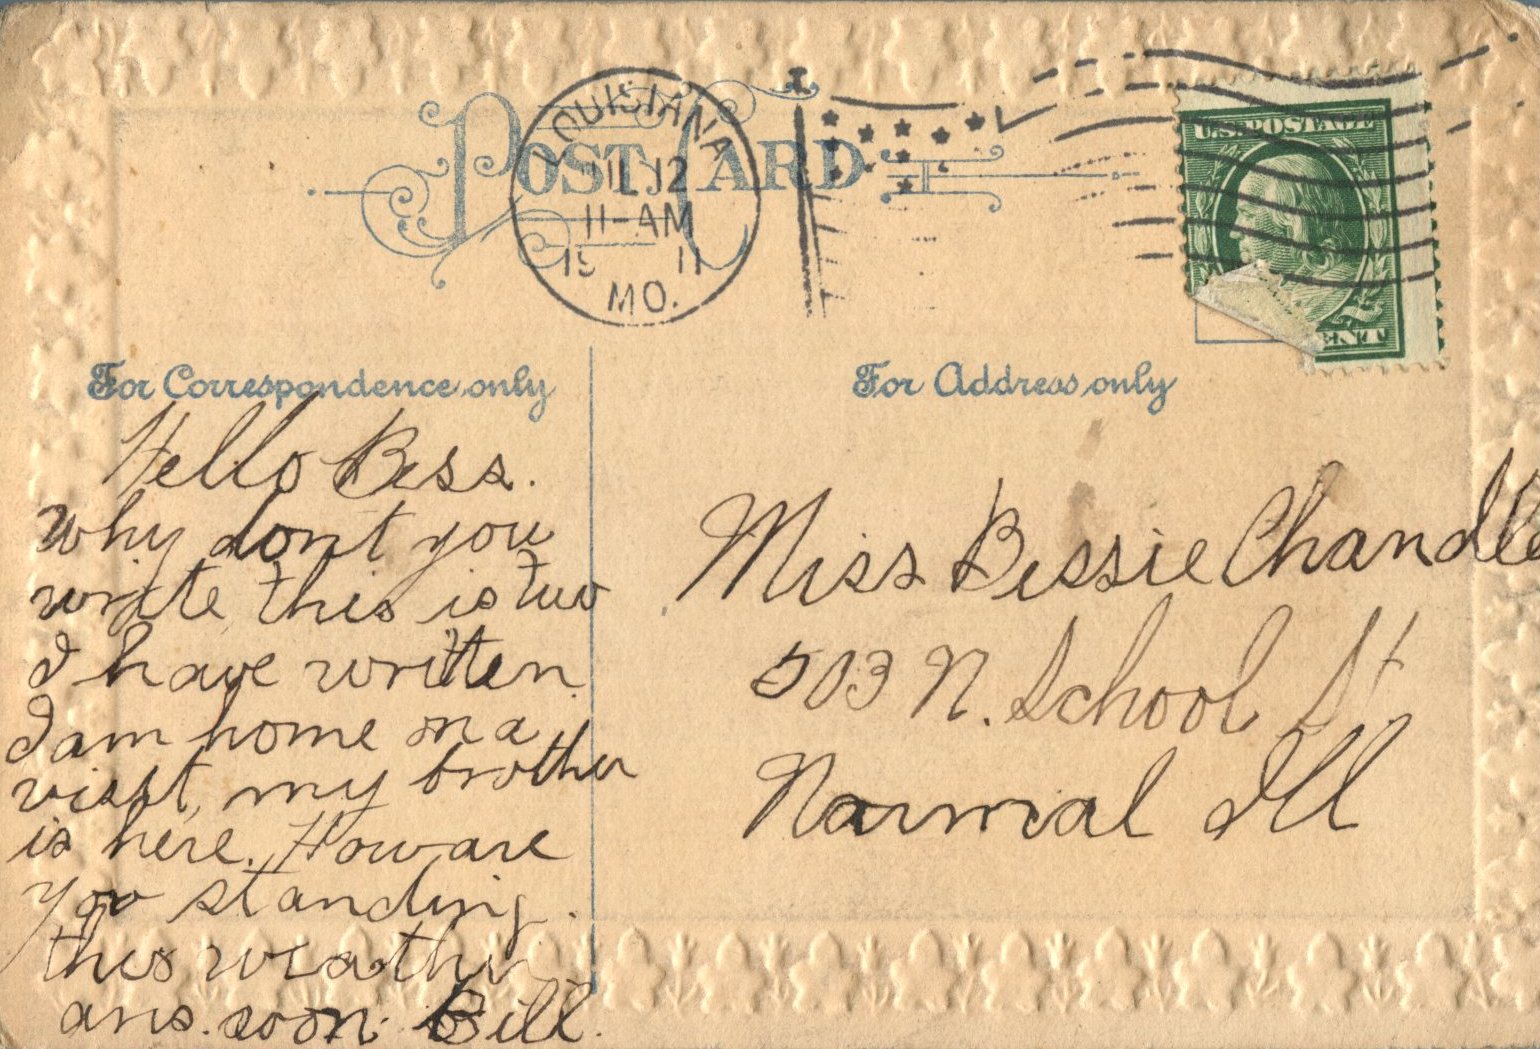 POST CARD
LOUISIANA
JUL 12
11-AM
19 11
MO.
U.S. POSTAGE
CENT
For Correspondence only
For Address only
Hello Bess.
why dont you
write this is two
I have written.
I am home on a
visit, my brother
is here. How are
you standing.
this weather
ans. soon. Bill.
Miss Bessie Chandle
503 N. School St
Normal Ill